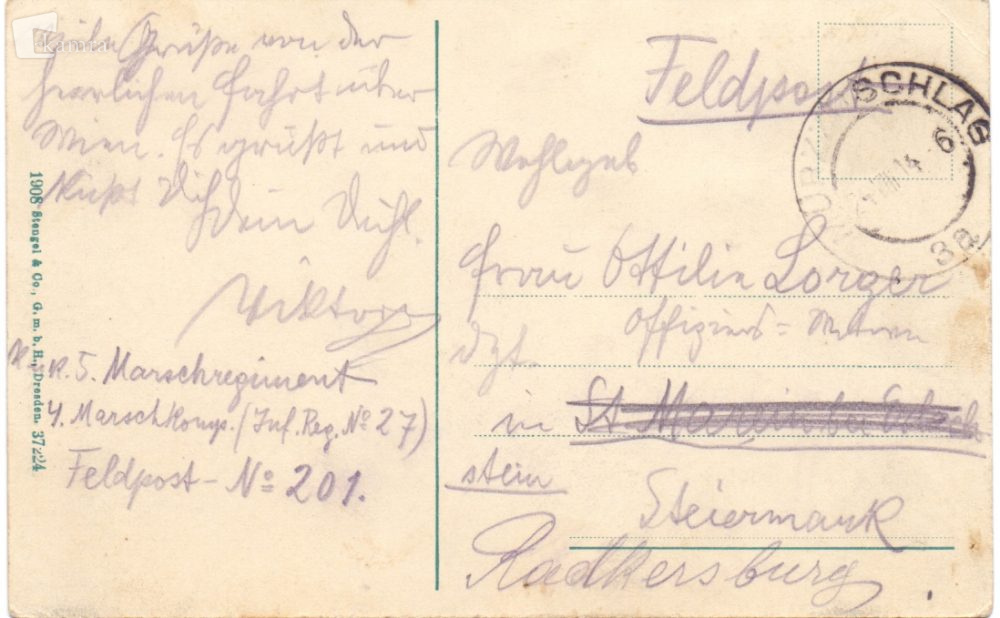 Viele Grüße von der
herrlichen Fahrt über
Wien. Es grüßt und
küßt Dich
Dein Dichl.
Viktor
K. K. 5. Marschregiment
4. Marschkomp. (Inf. Reg. No 27)
Feldpost - No 201.
1908 Stengel & Co., G. m. b. H., Dresden. 37224
Feldpost
SCHLAG
6
14
3a
Wohlgeb
Frau Ottilie Lorger
Offiziers =
dzt.
in St. Marein bei
stein
Steiermark
Radkersburg